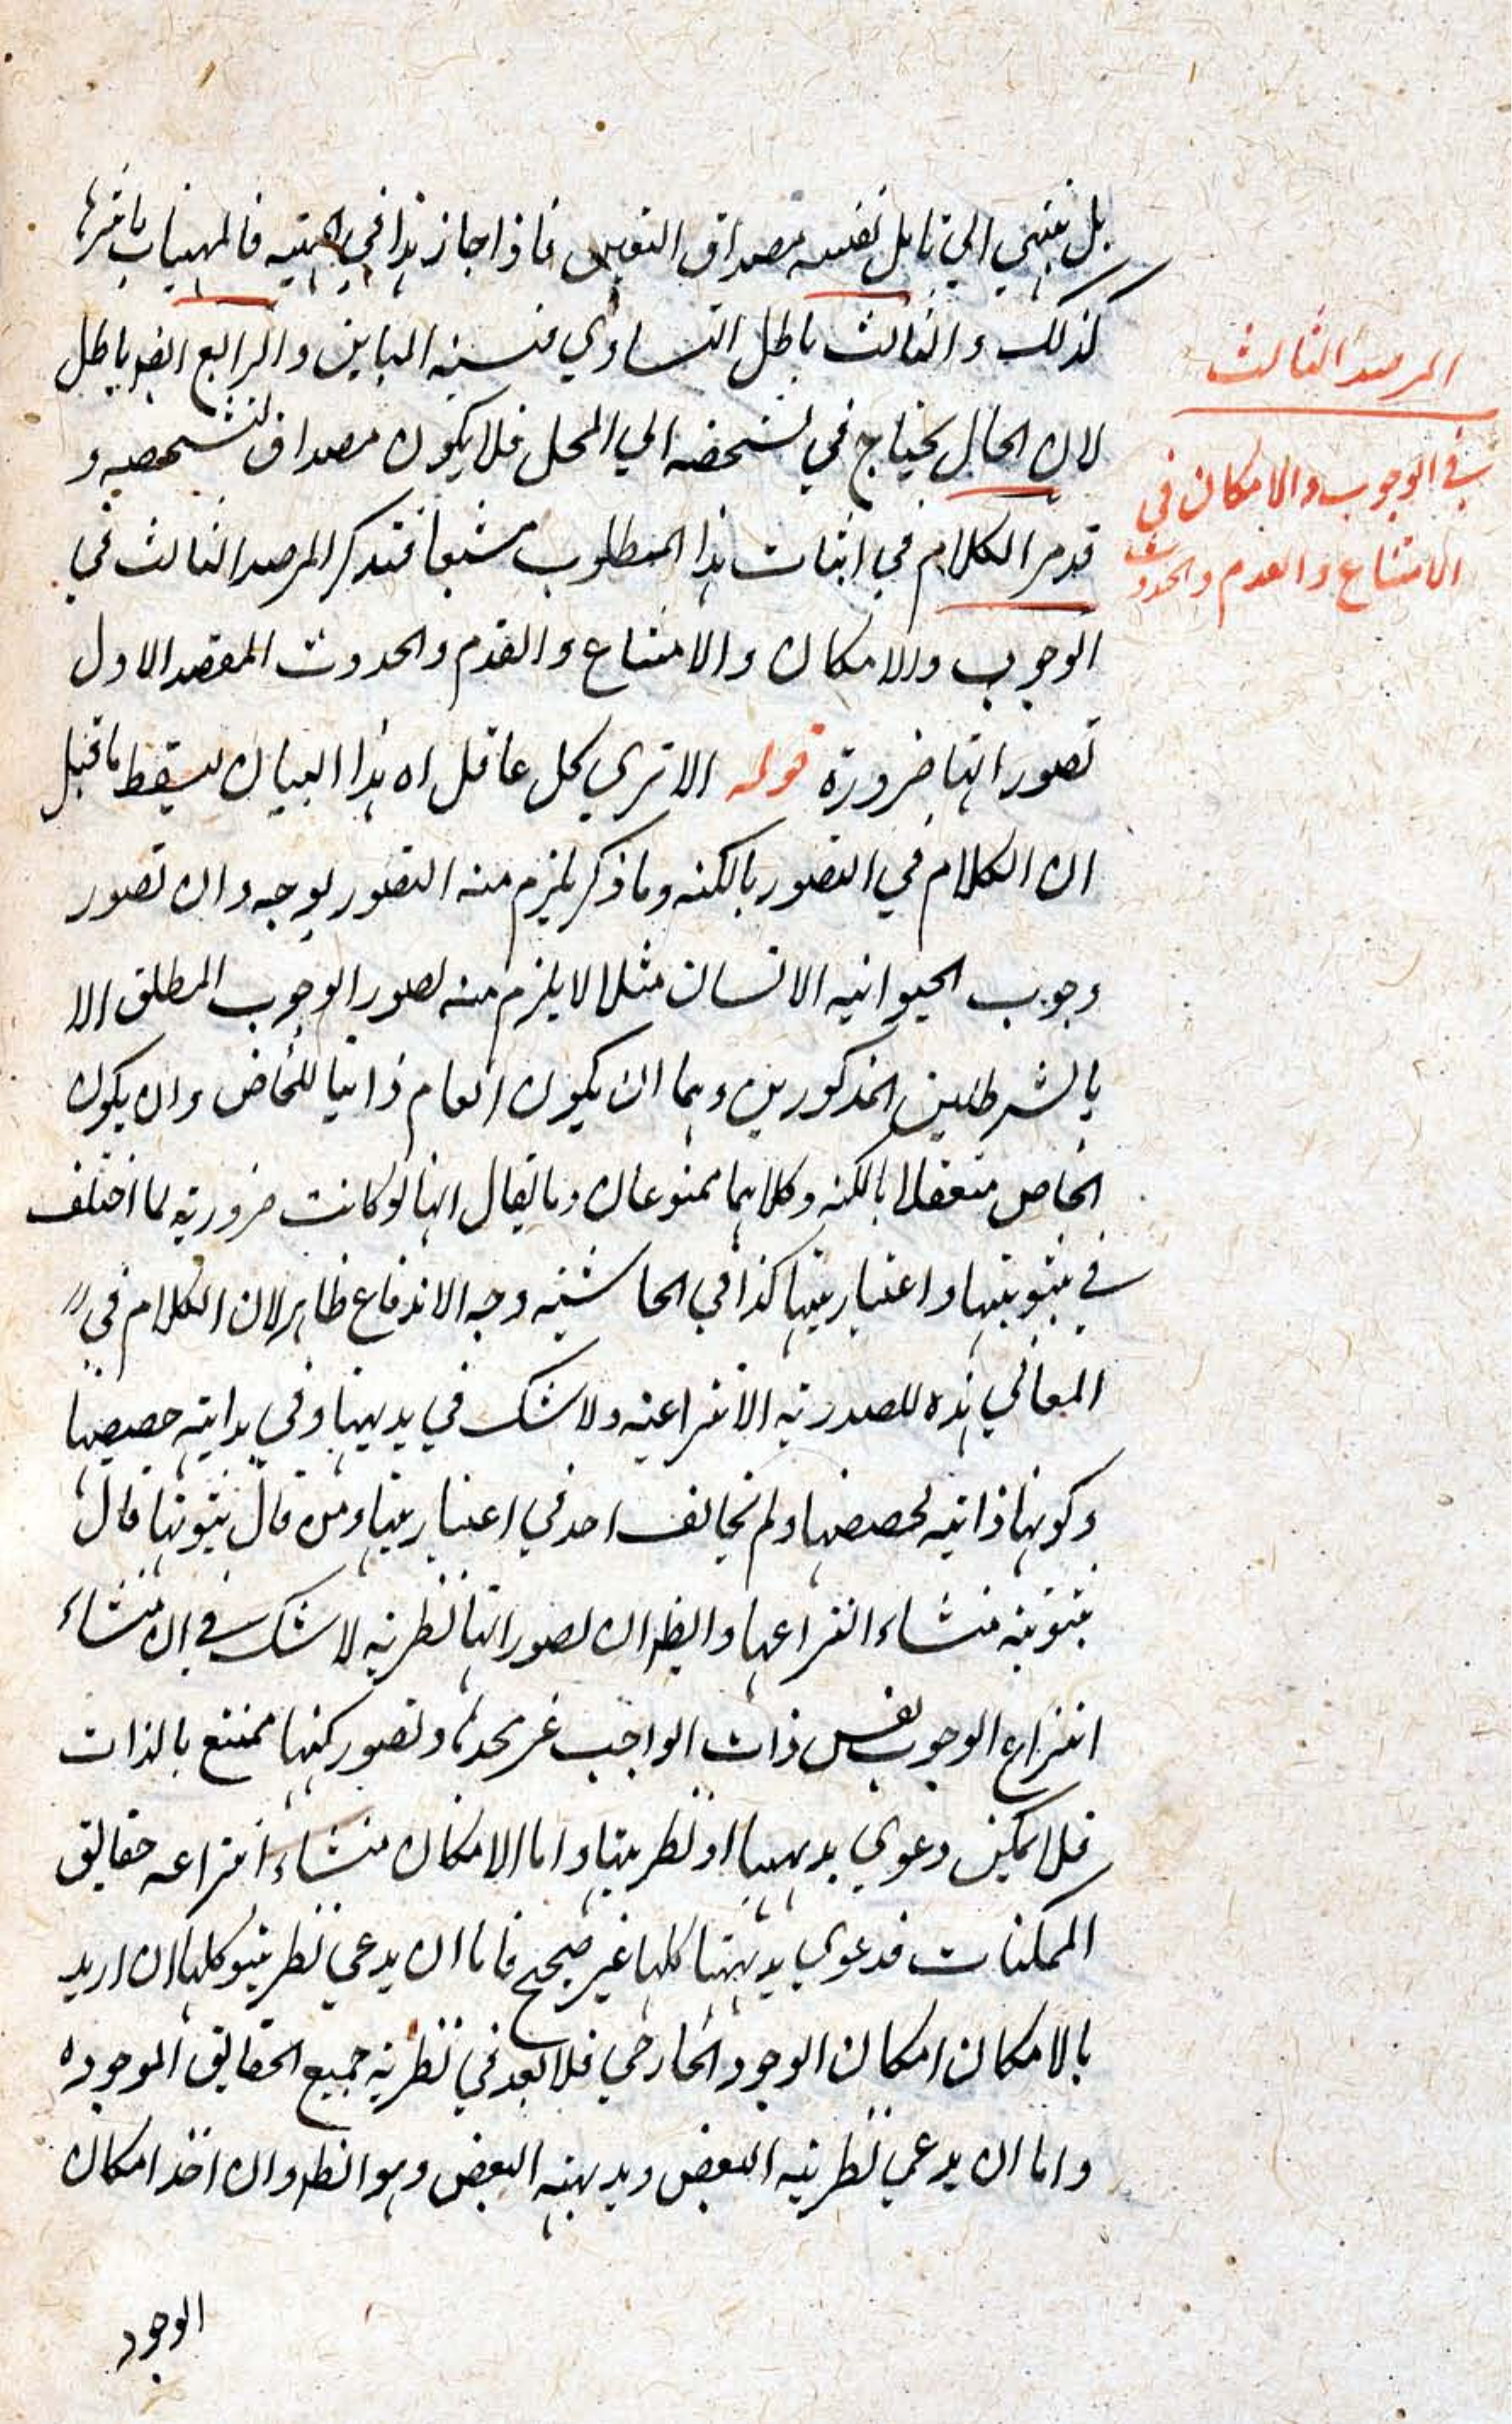 بل ينتهي الي قابل نفسه مصداق التعين فاذا جاز هذا في ماهية فالمهيات باسرها
كذلك والثالث باطل التساوي نسبة المباين والرابع ايضا باطل
لان الحال يحتاج في تشخصه الي المحل فلا يكون مصداق لتشخصه و
قد مر الكلام في اثبات هذا المطلوب مشبعا فتذكر المرصد الثالث في
الوجوب والامكان والامتناع والقدم والحدوث المقصد الاول
تصوراتها ضرورة قوله الا تري كل عاقل اه هذا البيان يسقط ما قيل
ان الكلام في التصور بالكنه وما ذكر يلزم منه التصور بوجه وان تصور
وجوب الحيوانيه الانسان مثلا لا يلزم منه تصور الوجوب المطلق الا
بالشرطين المذكورين وهما ان يكون العام ذاتيا للخاص وان يكون
الخاص متعقلا بالكنه وكلاهما ممنوعان وما يقال انها لو كانت ضرورية لما اختلف
في ثبوتيتها واعتباريتها كذا في الحاشية وجه الاندفاع ظاهر لان الكلام في
المعاني هذه المصدرية الانتزاعية ولا شك في بديهيتها وفي بداهية حصصها
وكونها ذاتية لحصصها ولم يخالف احد في اعتباريتها ومن قال بثبوتها قال
بثبوتية منشاء انتزاعها وايضا ان تصوراتها نظرية لا شك في ان منشاء
انتزاع الوجوب نفس ذات الواجب عز مجده وتصور كنهها ممتنع بالذات
فلا يمكن دعوي بديهيتها او نظريتها واما الامكان منشاء انتزاعه حقايق
الممكنات فدعوي بديهيتها كلها غير صحيح فاما ان يدعي نظريتها كلها ان اريد
بالامكان امكان الوجود الخارجي فلا بعد في نظرية جميع الحقايق الموجوده
واما ان يدعي نظرية البعض وبديهية البعض وهو الظ وان اخذ امكان
الوجود
المرصد الثالث
في الوجوب والامكان في
الامتناع والعدم والحدوث